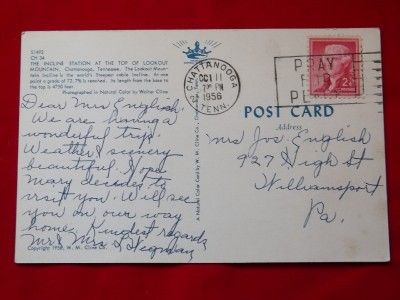 51493
CH 34
THE INCLINE STATION AT THE TOP OF LOOKOUT
MOUNTAIN, Chattanooga, Tennessee. The Lookout Moun-
tain Incline is the world's Steepest cable Incline. At one
point a grade of 72.7% is reached. Its length from base to
the top is 4750 feet
Photographed in Natural Color by Walter Cline
Dear Mrs English,
We are having a
wonderful trip.
Weather & scenery
beautiful. Hope
Mary decides to
visit you. Will see
you on our way
home. Kindest regards
Mr & Mrs Stegman
Copyright W. M. Cline Co.
A Natural Color Card by W. M. Cline Co.
CHATTANOOGA
OCT 11
PM
1956
TENN.
PRAY
FOR
2¢
POST CARD
Address
Mrs Jos. English
927 High St
Williamsport
Pa.